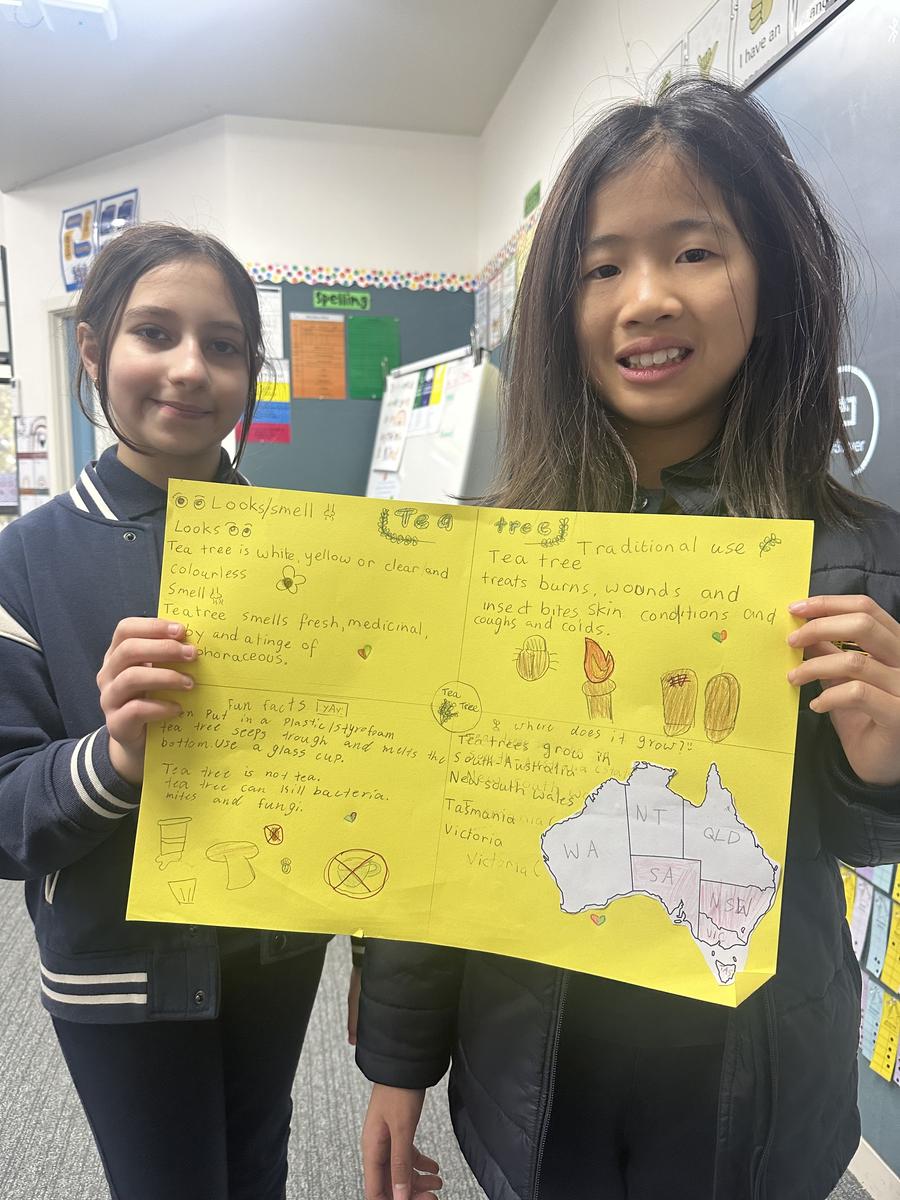 Spelling
I have an
Looks/smell
Tea tree
Looks
Tea tree is white, yellow or clear and
colourless
Smell
Tea tree smells fresh, medicinal,
and a tinge of
phoraceous.
Traditional use
Tea tree
treats burns, wounds and
insect bites skin conditions and
coughs and colds.
Tea
Tree
Fun facts YAY!
en put in a plastic/styrofoam
tea tree seeps trough and melts the
bottom. Use a glass cup.
Tea tree is not tea.
tea tree can kill bacteria.
mites and fungi.
where does it grow?
Tea trees grow in
South Australia
New south wales
Tasmania
Victoria
Victoria
WA
NT
QLD
SA
NSW
VIC